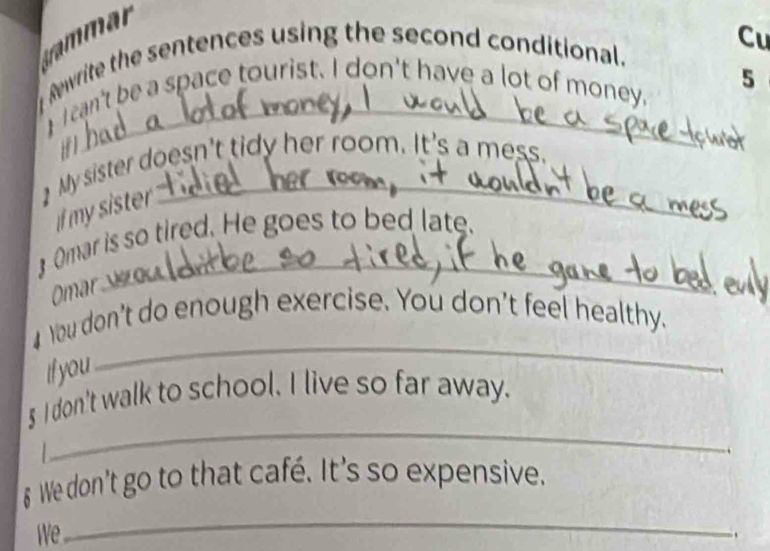 Grammar
1 Rewrite the sentences using the second conditional.
Cu
5
1 I can't be a space tourist. I don't have a lot of money.
If I had a lot of money, I would be a space tourist
2 My sister doesn't tidy her room. It's a mess.
If my sister tidied her room, it wouldn't be a mess
3 Omar is so tired. He goes to bed late.
Omar wouldn't be so tired, if he gone to bed early
4 You don't do enough exercise. You don't feel healthy.
If you .
5 I don't walk to school. I live so far away.
I .
6 We don't go to that café. It's so expensive.
We .